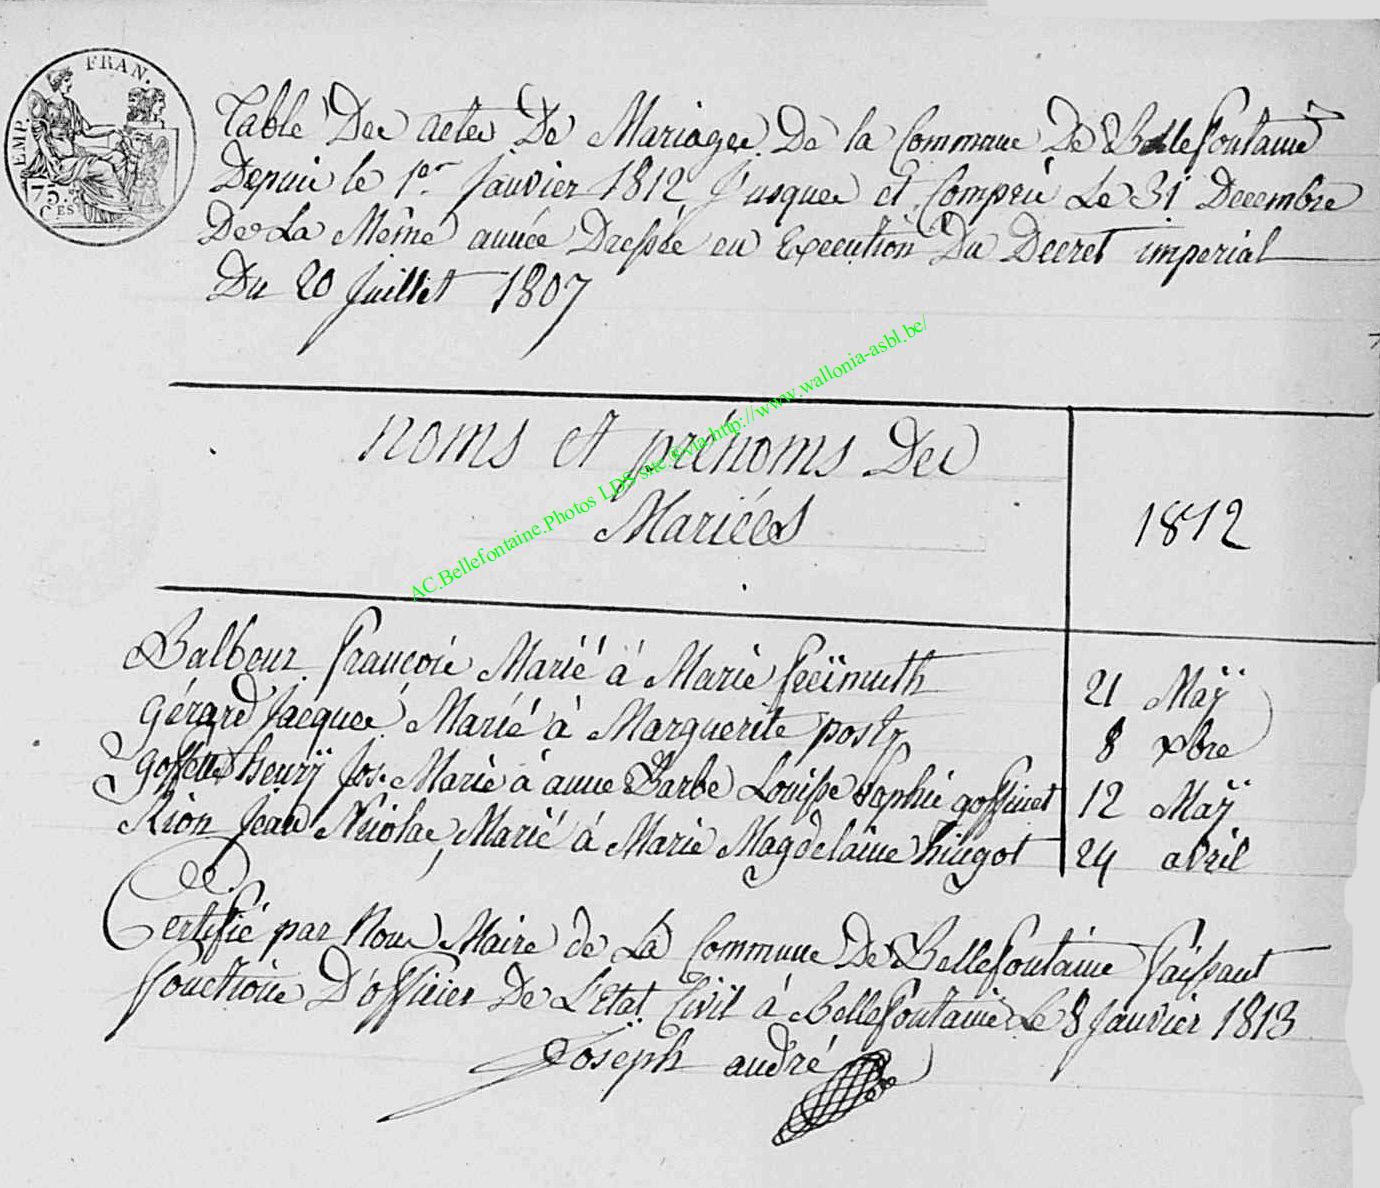 EMP. FRAN.
75.
CES
Table Des actes De Mariages De la Commune De Bellefontaine
Depuis le 1er Janvier 1812 Jusques et Compris Le 31 Decembre
De La Même année Dressée en Execution Du Decret imperial
Du 20 Juillet 1807
AC.Bellefontaine.Photos LDS site.via http://www.wallonia-asbl.be/
noms et prénoms Des
Mariées
1812
Balbeur François Marié à Marie freïmuth 21 Maÿ
Gérard Jacques Marié à Marguerite 8 xbre
henrÿ Jos. Marié à anne Barbe Louisse Sophie goffinet 12 Maÿ
Rion Jean Nicolas, Marié à Marie Magdelaine hingot 24 avril
Certifié par Nous Maire de La Commune De Bellefontaine faissant
fonctions D'officier De L'Etat Civil à Bellefontaine Le 8 Janvier 1813
Joseph andré